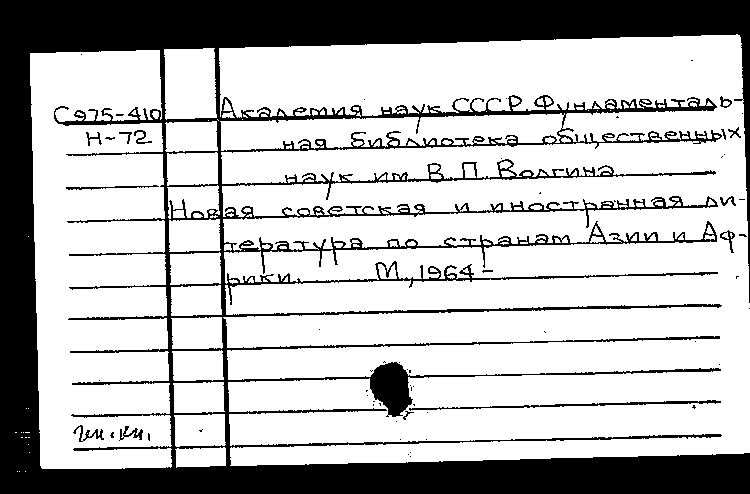 С975-410 Академия наук СССР. Фундаменталь-
Н-72 ная библиотека общественных
наук им В.П. Волгина
Новая советская и иностранная ли-
тература по странам Азии и Аф-
рики. М., 1964 -